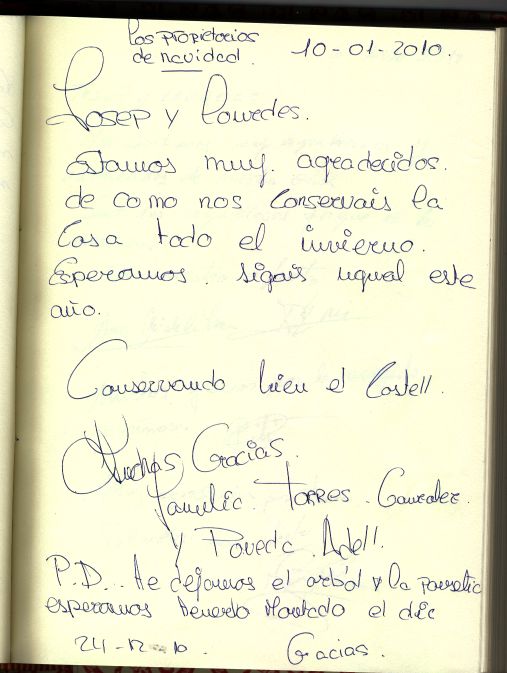 los propietarios
de navidad. 10-01-2010.
Josep y Lourdes.
Estamos muy. agradecidos.
de como nos conservais la
Casa todo el invierno.
Esperamos. sigais ugual este
año.
Conservando bien el Castell.
Muchas Gracias.
Familia. TORRES. Gonzalez.
y Poveda. Adell.
P.D... te dejamos el arból y la
esperamos Montado el dia
24-12-10. Gracias.